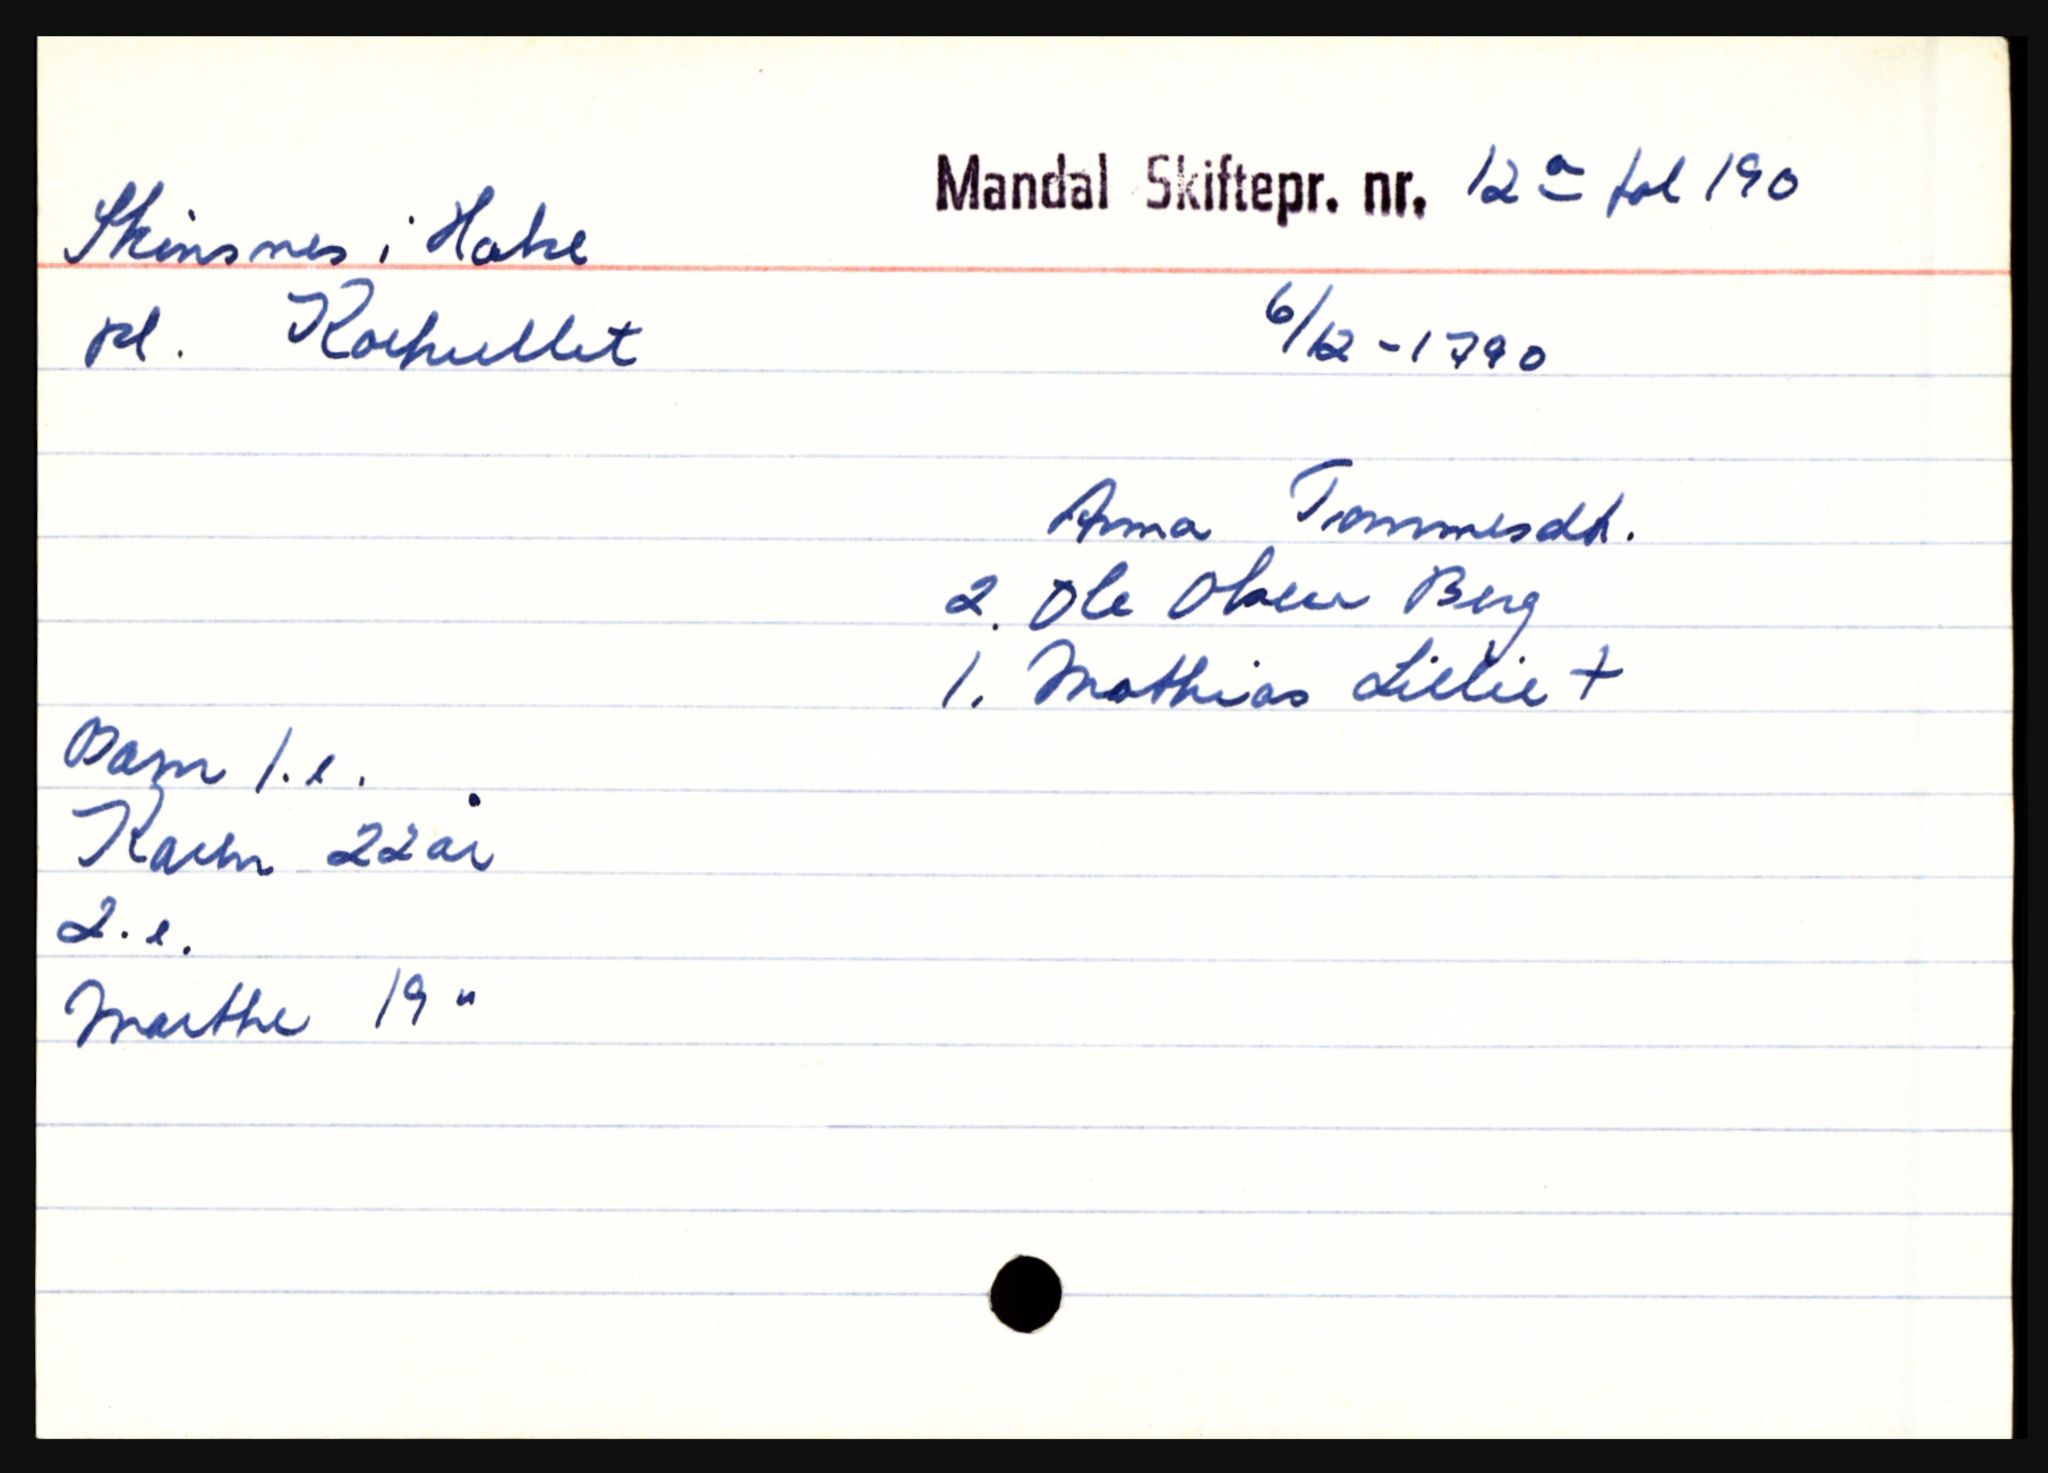 Mandal Skiftepr. nr. 12a fol 190
Skinsnes i Halse
pl. Korhullet
6/12-1790
Anna Tommesdt.
2. Ole Olsen Berg
1. Mathias Lillie +
Barn 1. e.
Karen 22 år
2. e.
Marthe 19 "